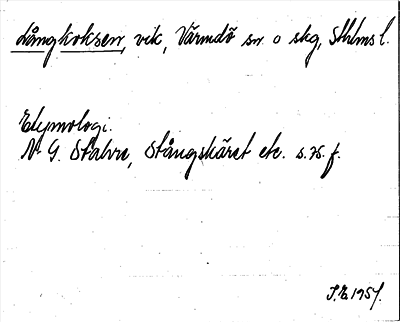 Långkoksen, vik, Värmdö sn o skg, Sthlms l.
Etymologi.
N. G. Stålvre, Stångskäret etc. s. 75. f.
S.E. 1957.